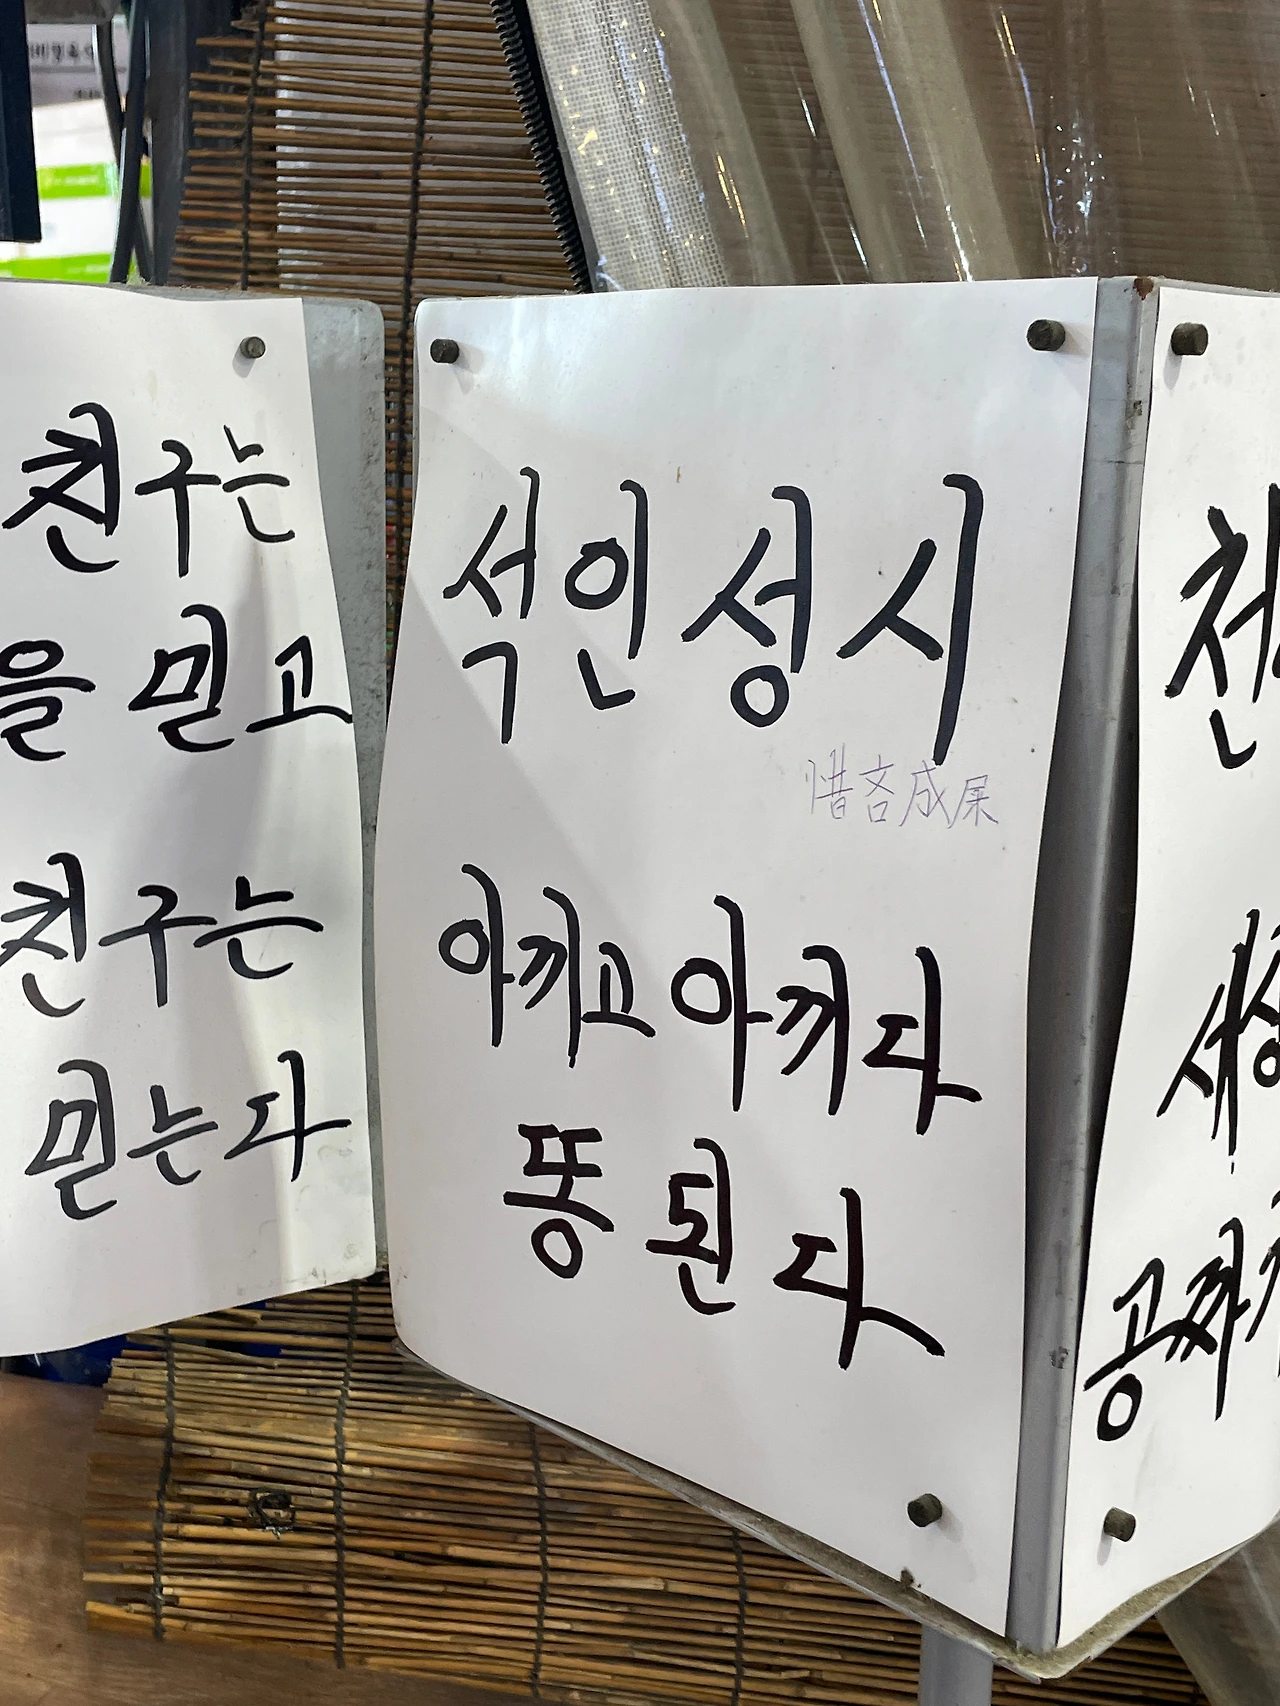 친구는
을 믿고
친구는
믿는다
석인성시
惜吝成屎
아끼고 아끼다
똥 된다
천
세상
공짜